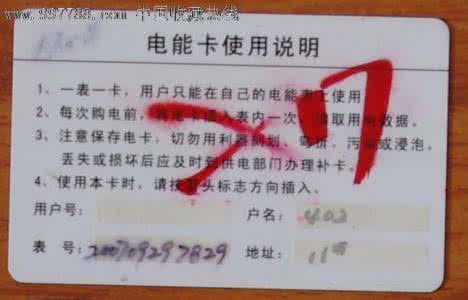 www.997788.com 中国收藏热线
电能卡使用说明
1、一表一卡，用户只能在自己的电能表上使用
2、每次购电前，将电卡插入表内一次，读取用电数据。
3、注意保存电卡，切勿用利器刻划、弯折、污染或浸泡。
丢失或损坏后应及时到供电部门办理补卡。
4、使用本卡时，请按箭头标志方向插入。
用户号： 户名：402
表 号：200709297829 地址：